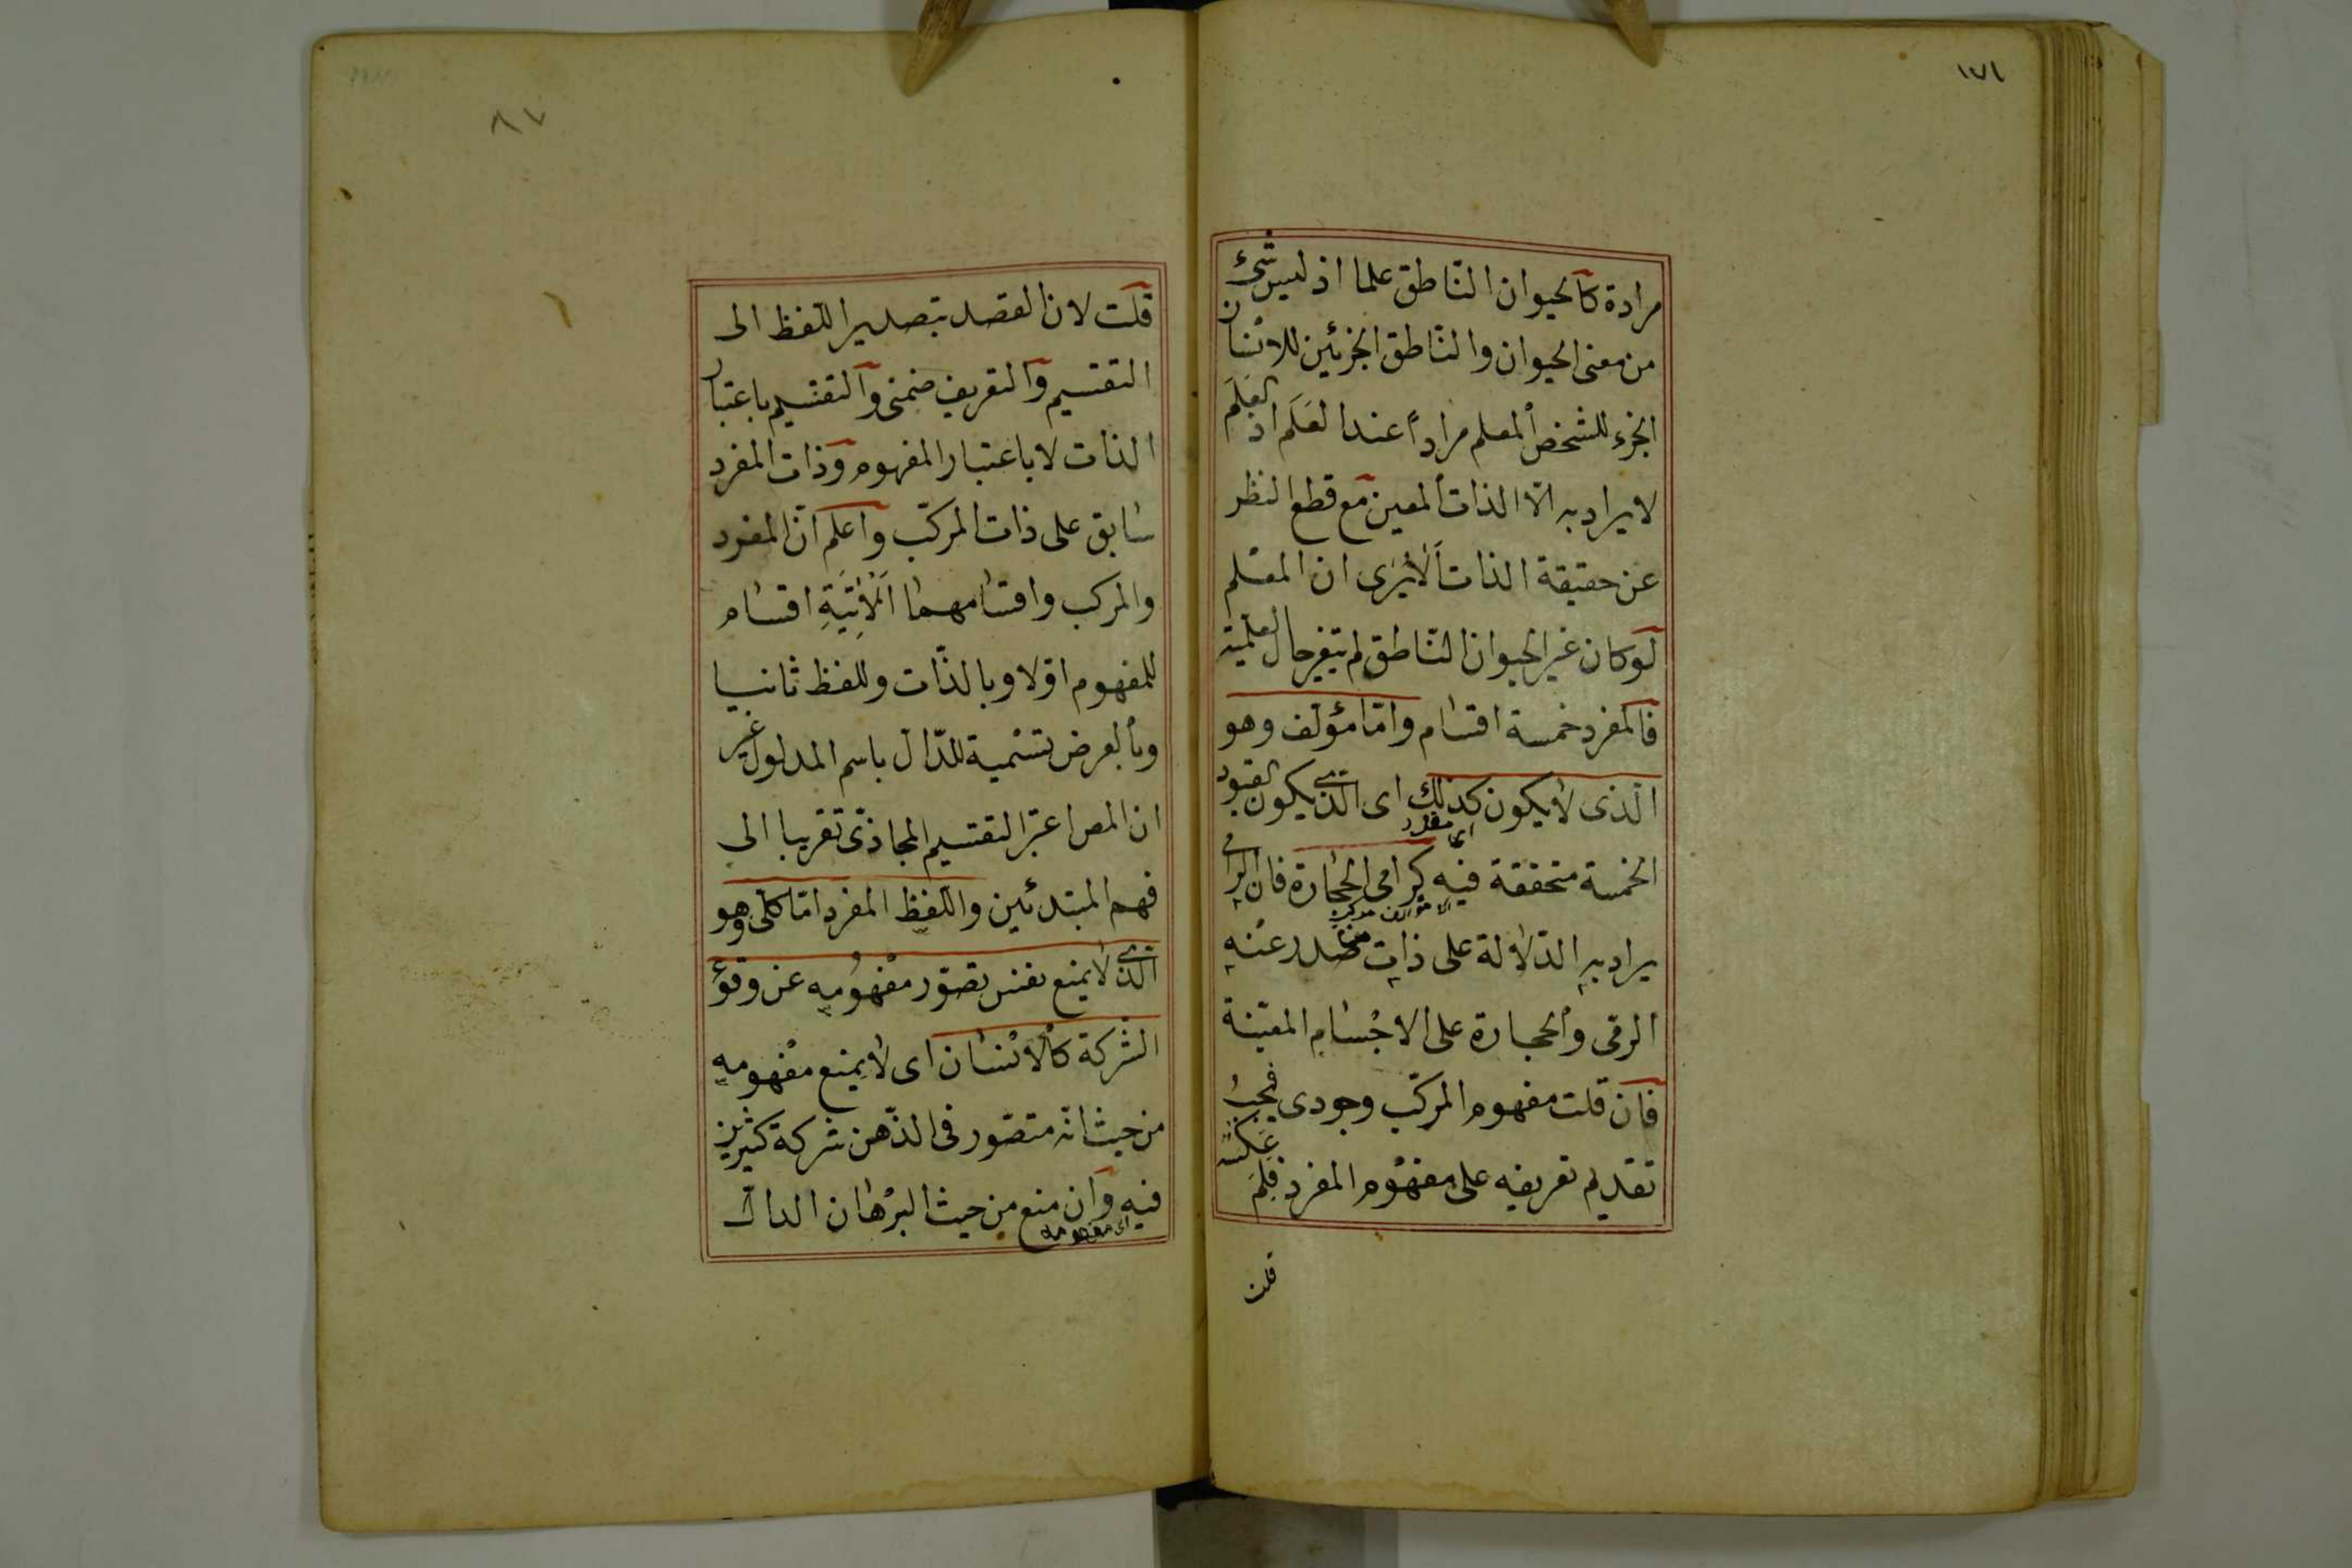 ١٧١
مرادة كالحيوان الناطق علما اذ ليس شئ
من معنى الحيوان والناطق الجزئين للانسان
الجزء للشخص المعلم مراداً عند العَلَم اذ العَلَم
لا يراد به الّا الذات المعين مع قطع النظر
عن حقيقة الذات اَلا يُرى ان المعلم
لو كان غير الحيوان الناطق لم يتغير حال العلمية
فالمفرد خمسة اقسام وامّا مؤلف وهو
الذى لا يكون كذلك اى الذى يكون القيود
الخمسة متحققة فيه كرامى الحجارة فان الرامى
يراد به الدّلالة على ذات صدر عنه
الرمى والحجارة على الاجسام المعيّنة
فان قلت مفهوم المركّب وجودى فيجب
تقديم تعريفه على مفهوم المفرد فلِمَ عكسَ
قلت
٨٧
قلت لان القصد بتصدير اللفظ الى
التقسيم والتعريف ضمنى والتقسيم باعتبار
الذات لا باعتبار المفهوم وذات المفرد
سابق على ذات المركّب واعلم انّ المفرد
والمركب واقسامهما اَلْآتِيَةِ اقسام
للمفهوم اوّلا وبالذّات وللفظ ثانيا
وبالعرض تسمية للدّال باسم المدلول غير
ان المص اعتبر التقسيم المجاذىّ تقريبا الى
فهم المبتدئين واللفظ المفرد امّا كلى وهو
الذى لا يمنع نفس تصوّر مفهُومِه عن وقوع
الشركة كالانسان اى لا يمنع مفهومه
من حيث انّه متصّور فى الذّهن شركة كثيرين
فيه وان منع من حيث البرهان الدالّ
اى مفهومه